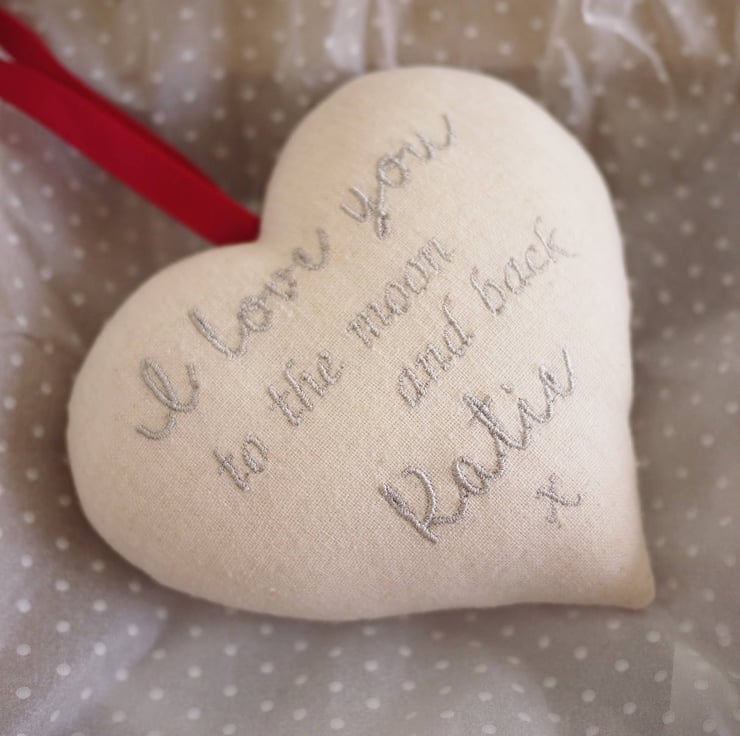 I love you
to the moon
and back
Katie
x